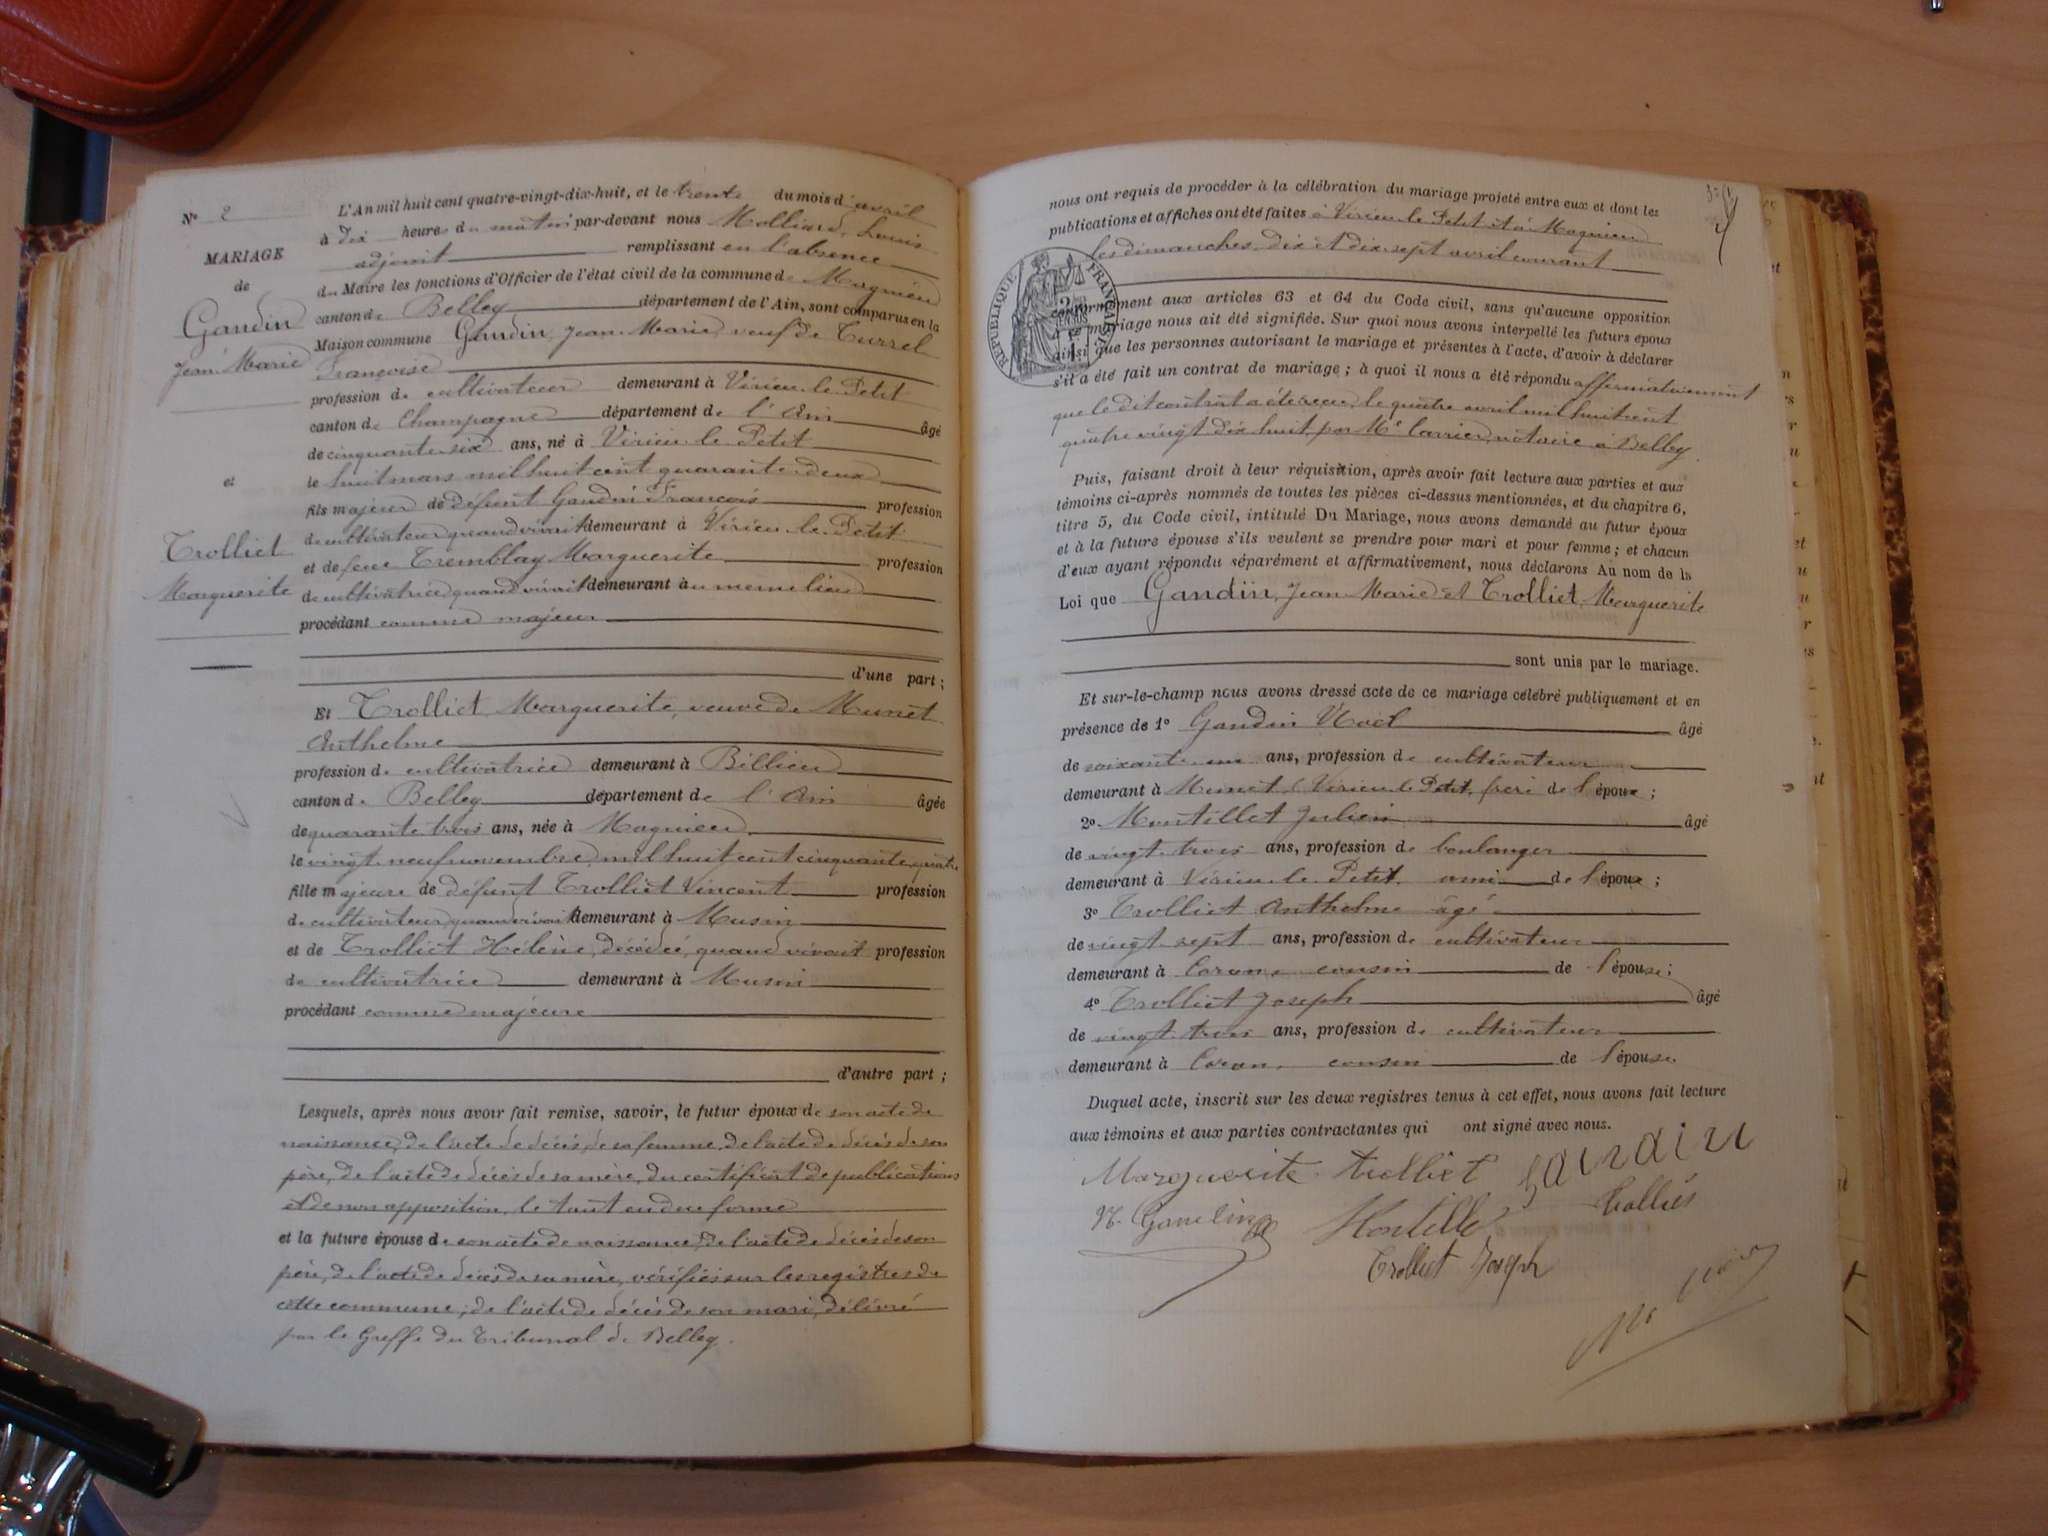 N° 2
MARIAGE
de
Gandin
Jean Marie
et
Trolliet
Marguerite
L'An mil huit cent quatre-vingt-dix-huit, et le trente du mois d'avril
à dix heures du matin par-devant nous Molliard, Louis
adjoint remplissant en l'absence
du Maire les fonctions d'Officier de l'état civil de la commune de Magnieu
canton de Belley département de l'Ain, sont comparus en la
Maison commune Gandin, Jean Marie, veuf de Turrel
Françoise
profession de cultivateur demeurant à Virieu-le-Petit
canton de Champagne département de l'Ain âgé
de cinquante-six ans, né à Virieu-le-Petit
le huit mars mil huit cent quarante-deux
fils majeur de défunt Gandin François profession
de cultivateur quand vivait demeurant à Virieu-le-Petit
et de feue Tremblay Marguerite profession
de cultivatrice quand vivait demeurant au même lieu
procédant comme majeur
d'une part;
Et Trolliet Marguerite, veuve de Munet
Anthelme
profession de cultivatrice demeurant à Billieu
canton de Belley département de l'Ain âgée
de quarante-trois ans, née à Magnieu
le vingt-neuf novembre mil huit cent cinquante-quatre
fille majeure de défunt Trolliet Vincent profession
de cultivateur, quand vivait demeurant à Musin
et de Trolliet Hélène, décédée, quand vivait profession
de cultivatrice demeurant à Musin
procédant comme majeure
d'autre part;
Lesquels, après nous avoir fait remise, savoir, le futur époux de son acte de
naissance, de l'acte de décès de sa femme, de l'acte de décès de son
père, de l'acte de décès de sa mère, du certificat de publications
et de non opposition, le tout en due forme
et la future épouse de son acte de naissance, de l'acte de décès de son
père, de l'acte de décès de sa mère, vérifiés sur les registres de
cette commune; de l'acte de décès de son mari, délivré
par le Greffe du Tribunal de Belley.
nous ont requis de procéder à la célébration du mariage projeté entre eux et dont les
publications et affiches ont été faites à Virieu-le-Petit et à Magnieu
les dimanches dix et dix-sept avril courant
RÉPUBLIQUE FRANÇAISE
conformément aux articles 63 et 64 du Code civil, sans qu'aucune opposition
à ce mariage nous ait été signifiée. Sur quoi nous avons interpellé les futurs époux
ainsi que les personnes autorisant le mariage et présentes à l'acte, d'avoir à déclarer
s'il a été fait un contrat de mariage; à quoi il nous a été répondu affirmativement
que le dit contrat a été reçu, le quatre avril mil huit cent
quatre vingt dix huit, par Me Carrier, notaire à Belley.
Puis, faisant droit à leur réquisition, après avoir fait lecture aux parties et aux
témoins ci-après nommés de toutes les pièces ci-dessus mentionnées, et du chapitre 6,
titre 5, du Code civil, intitulé Du Mariage, nous avons demandé au futur époux
et à la future épouse s'ils veulent se prendre pour mari et pour femme; et chacun
d'eux ayant répondu séparément et affirmativement, nous déclarons Au nom de la
Loi que Gandin, Jean Marie et Trolliet, Marguerite
sont unis par le mariage.
Et sur-le-champ nous avons dressé acte de ce mariage célébré publiquement et en
présence de 1° Gandin Noël âgé
de soixante-un ans, profession de cultivateur
demeurant à Munet (Virieu-le-Petit, frère de l'époux;
2° Montillet Julien âgé
de vingt-trois ans, profession de boulanger
demeurant à Virieu-le-Petit, ami de l'époux;
3° Trolliet Anthelme âgé
de vingt-sept ans, profession de cultivateur
demeurant à cousin de l'épouse;
4° Trolliet Joseph âgé
de vingt-trois ans, profession de cultivateur
demeurant à cousin de l'épouse.
Duquel acte, inscrit sur les deux registres tenus à cet effet, nous avons fait lecture
aux témoins et aux parties contractantes qui ont signé avec nous.
Marguerite trolliet gandin
N. Gandin Montillet
Trolliet Joseph